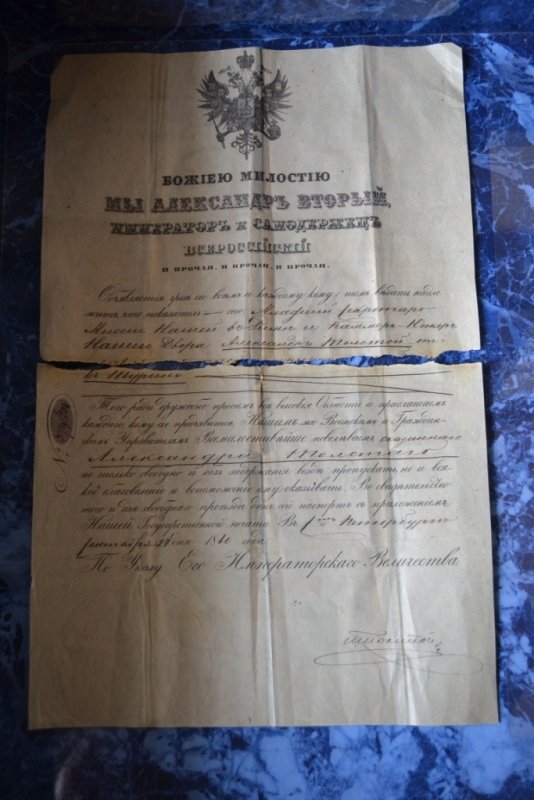 БОЖІЕЮ МИЛОСТІЮ
МЫ АЛЕКСАНДРЪ ВТОРЫЙ,
ИМПЕРАТОРЪ И САМОДЕРЖЕЦЪ
ВСЕРОССІЙСКІЙ
И ПРОЧАЯ, И ПРОЧАЯ, И ПРОЧАЯ.
Объявляется чрезъ сіе всѣмъ и каждому кому о томъ вѣдать надле
жить, что показатель Младшій Секретарь
Миссіи Нашей въ и Каммеръ-Юнкеръ
Нашего Двора Александръ Толстой
въ Туринъ
Того ради дружебно просимъ всѣ высокія Области и приглашаемъ
каждаго, кому предъявится, Нашимъ же Воинскимъ и Граждан-
скимъ Управителямъ Всемилостивѣйше повелѣваемъ сказаннаго
Александра Толстаго
не только свободно и безъ задержанія вездѣ пропускать, но и вся-
кое благоволеніе и вспоможеніе ему оказывать. Во свидѣтельство
того и для свободнаго проѣзда данъ сей паспортъ съ приложеніемъ
Нашей Государственной печати. Въ Петербургѣ
сентября дня 1860 года
По Указу Его Императорскаго Величества
№